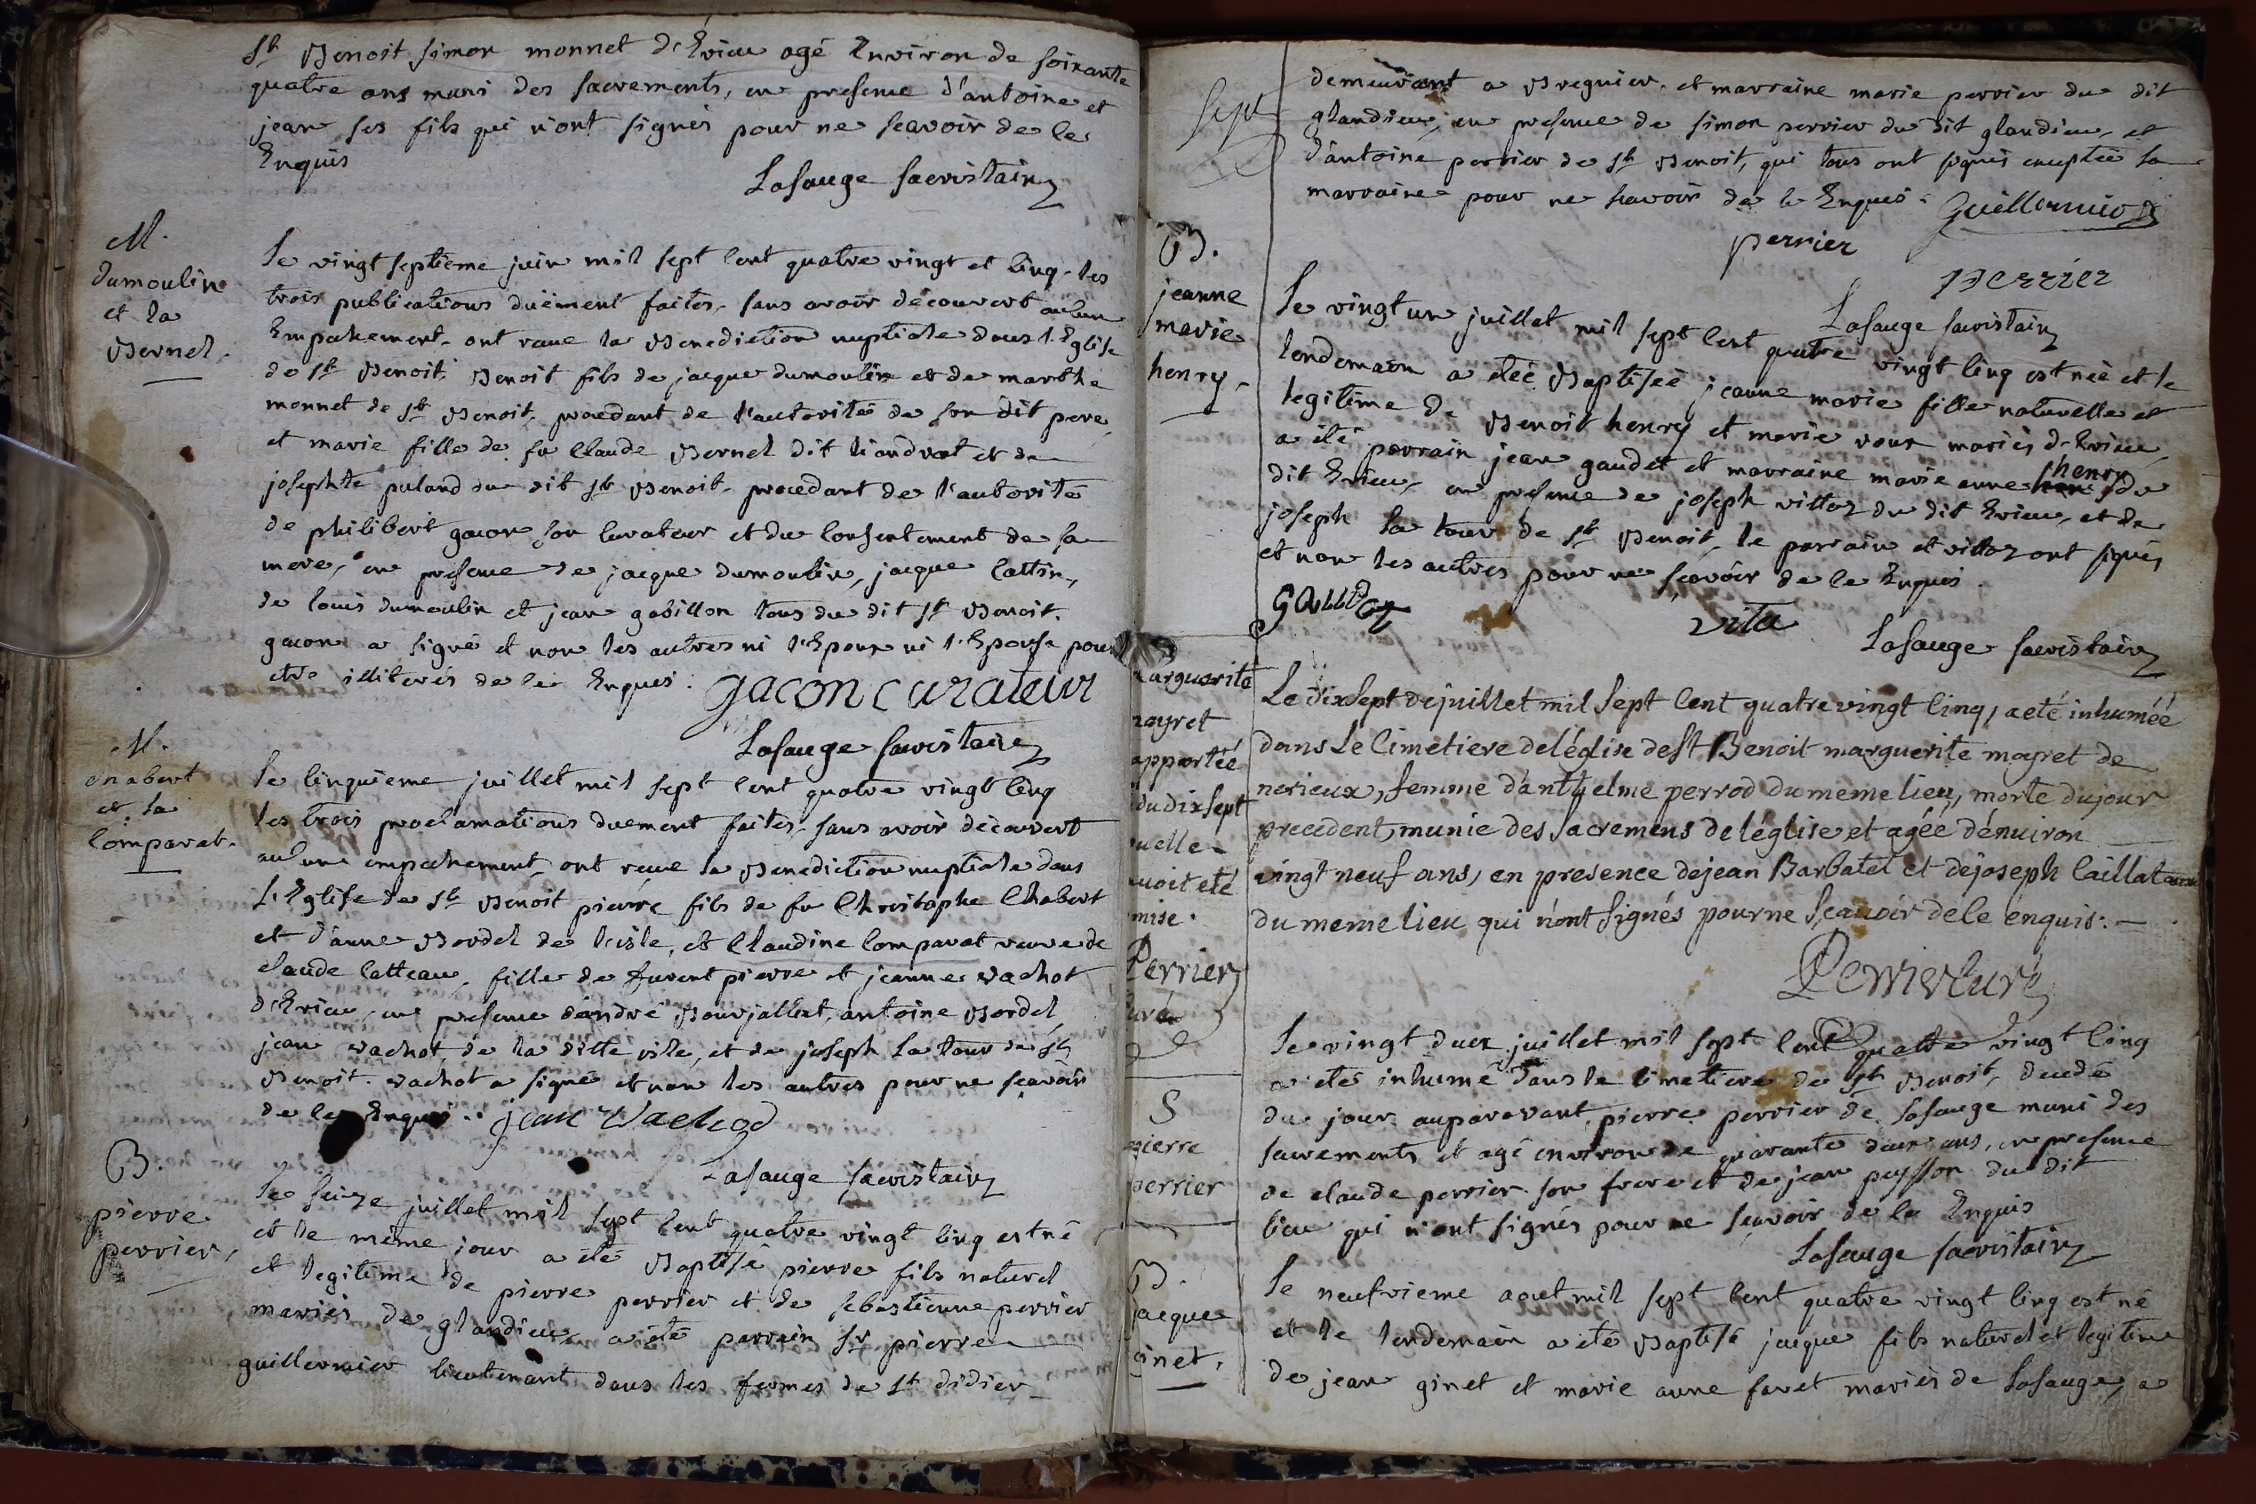 St Benoit simon monnet d'Evieu agé Environ de soixante
quatre ans muni des sacrements, en presence d'antoine et
jean ses fils qui n'ont signés pour ne sçavoir de ce
Enquis
Lasauge sacristain
M.
dumoulin
et la
Bernel.
Le vingt septieme juin mil sept cent quatre vingt et cinq. les
trois publications duëment faites, sans avoir decouvert aucun
Empechement, ont recue la Benediction nuptiale dans l'Eglise
de St Benoit, Benoit fils de jacque dumoulin et de marthe
monnet de St Benoit, procedant de l'autorité de son dit pere,
et marie fille de fu Claude Bernel dit liandrat et de
josephte puland du dit St Benoit, procedant de l'autorité
de philibert gacon son curateur et du consentement de sa
mere, en presence de jacque dumoulin, jacque cattin,
de louis dumoulin et jean gabillon tous du dit St Benoit.
gacon a signé et non les autres ni l'Epoux ni l'Epouse pour
etre illiterés de ce Enquis.
gacon curateur
Lasauge sacristain
M.
chabert
et la
Comparat.
Le cinquieme juillet mil sept cent quatre vingt cinq
les trois proclamations duement faites, sans avoir decouvert
aucune empechement, ont recue la Benediction nuptiale dans
l'Eglise de St Benoit pierre fils de fu Christophe Chabert
et d'anne Bordel de l'isle, et Claudine Comparat veuve de
claude Catteau, fille de furent pierre et jeanne vachot
d'Evieu, en presence d'andré Bourjaillat, antoine Bordel,
jean vachot, de la ditte isle, et de joseph La tour de St
Benoit. vachot a signé et non les autres pour ne sçavoir
de ce Enquis.
jean Vachod
Lasauge sacristain
B.
pierre
perrier,
Le seize juillet mil sept cent quatre vingt cinq est né
et le même jour a été Baptisé pierre fils naturel
et legitime de pierre perrier et de sebastienne perrier
mariés de glandieu, a été parrain Sr pierre
guillermier lieutenant dans les fermes de St didier
demeurant a Bregnier, et marraine marie perrier du dit
glandieu, en presence de simon perrier du dit glandieu, et
d'antoine perrier de St Benoit, qui tous ont signés exceptée la
marraine pour ne scavoir de ce Enquis.
Guillermier
perrier
perrier
Lasauge sacristain
Sept
B.
jeanne
marie
henry.
Le vingt un juillet mil sept cent quatre vingt cinq est née et le
lendemain a eteé Baptiseé jeanne marie fille naturelle et
legitime de Benoit henry et marie roux mariés d'Evieu,
a été parrain jean gaudet et marraine marie anne henry du
dit Evieu, en presence de joseph vittoz du dit Evieu, et de
joseph La tour de St Benoit, le parrain et vittoz ont signés
et non les autres pour ne sçavoir de ce Enquis.
vita
Lasauge sacristain
Marguerite
mayret
apportée
du dix sept
quelle
avoit eté
mise.
Perrier
curé
Le dix sept de juillet mil sept cent quatre vingt cinq, a eté inhuméé
dans le Cimetiere de léglise de St Benoit marguerite mayret de
nerieux, femme d'anthelme perrod du meme lieu, morte du jour
precedent, munie des sacremens de léglise, et agéé d'enuiron
vingt neuf ans, en presence de jean Barbatel et de joseph Caillat
du meme lieu qui n'ont signés pour ne sçauoir de ce énquis.
Perrier Curé
S
pierre
perrier
Le vingt deux juillet mil sept cent quatre vingt cinq
a été inhumé dans le cimetiere de St Benoit, decedé
du jour auparavant, pierre perrier de Lasauge muni des
sacrements et agé environ de quarante deux ans, en presence
de claude perrier son frere et de jean peysson du dit
lieu qui n'ont signés pour ne sçavoir de ce Enquis
Lasauge sacristain
B.
jacque
ginet.
Le neufvieme aout mil sept cent quatre vingt cinq est né
et le lendemain a été Baptisé jacque fils naturel et legitime
de jean ginet et marie anne favet mariés de Lasauge, a